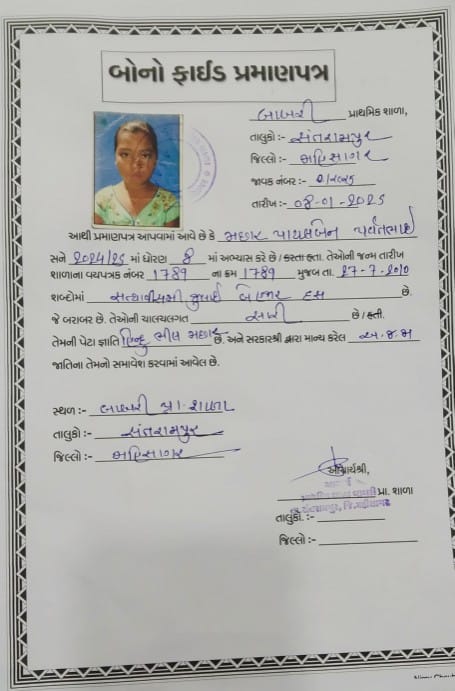 બોનો ફાઈડ પ્રમાણપત્ર
બાબરી પ્રાથમિક શાળા,
તાલુકો :- સંતરામપુર
જિલ્લો :- મહિસાગર
જાવક નંબર :-
તારીખ :- 08-01-2025
આથી પ્રમાણપત્ર આપવામાં આવે છે કે મછાર પાયલબેન પર્વતભાઈ
સને 2024/25 માં ધોરણ 8 માં અભ્યાસ કરે છે / કરતા હતા. તેઓની જન્મ તારીખ
શાળાના વયપત્રક નંબર 1789 ના ક્રમ 1789 મુજબ તા. 27-7-2010
શબ્દોમાં સત્યાવીસમી જુલાઈ બે હજાર દસ છે.
જે બરાબર છે. તેઓની ચાલચલગત સારી છે / હતી.
તેમની પેટા જ્ઞાતિ હિન્દુ ભીલ મછાર છે. અને સરકારશ્રી દ્વારા માન્ય કરેલ અ.જ.જા
જાતિના તેમનો સમાવેશ કરવામાં આવેલ છે.
સ્થળ :- બાબરી પ્રા. શાળા
તાલુકો :- સંતરામપુર
જિલ્લો :- મહિસાગર
આચાર્યશ્રી,
પ્રા. શાળા
તાલુકો. :-
જિલ્લો :-